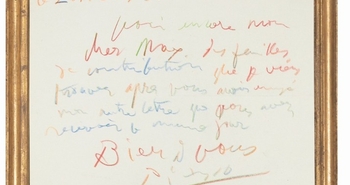 Voici encore mon
cher Max, des feuilles
de contribution que je viens
trouver après vous avoir envoyé
mon autre lettre que vous avez
recevoir le même jour
Bien à vous
Picasso